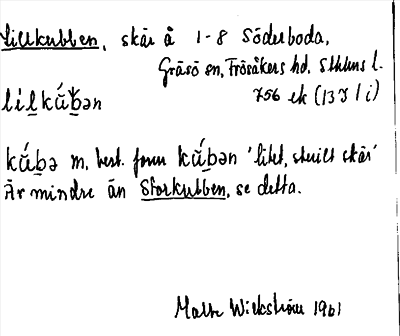 Lillkubben, skär å 1-8 Söderboda,
Gräsö sn, Frösåkers hd, Sthlms l.
756 ek (13 I 1 i)
lìl̠kú̆b̠ən
kú̆b̠ə m, best. form kú̆b̠ən 'litet, skilt skär'
Är mindre än Storkubben, se detta.
Malte Wickström 1961